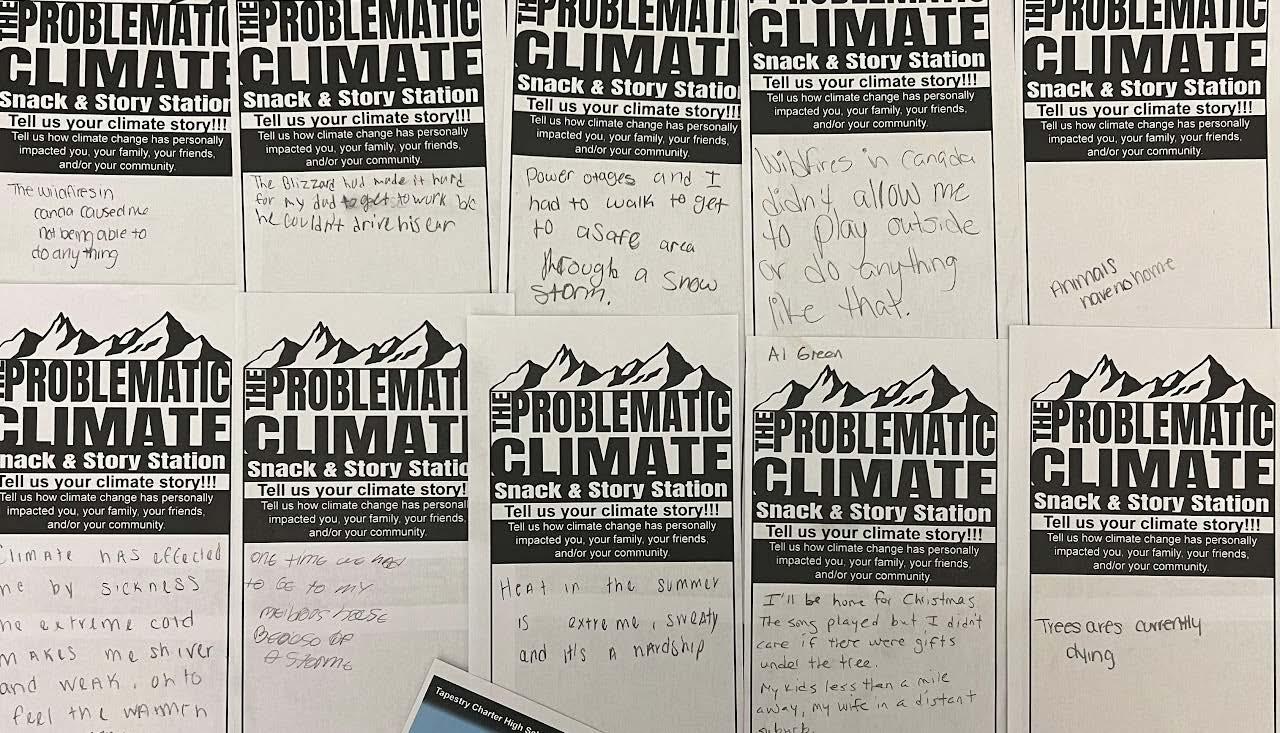 THE PROBLEMATIC
CLIMATE
Snack & Story Station
Tell us your climate story!!!
Tell us how climate change has personally
impacted you, your family, your friends,
and/or your community.
The wildfires in
canda caused me
not being able to
do anything
THE PROBLEMATIC
CLIMATE
Snack & Story Station
Tell us your climate story!!!
Tell us how climate change has personally
impacted you, your family, your friends,
and/or your community.
The Blizzard had made it hard
for my dad to get to work bc
he couldn't drive his car
THE PROBLEMATIC
CLIMATE
Snack & Story Statio
Tell us your climate story!!!
Tell us how climate change has personally
impacted you, your family, your friends,
and/or your community.
Power otages and I
had to walk to get
to a safe area
through a snow
storm.
PROBLEMATIC
CLIMATE
Snack & Story Station
Tell us your climate story!!!
Tell us how climate change has personally
impacted you, your family, your friends,
and/or your community.
Wildfires in Canada
didn't allow me
to play outside
or do anything
like that.
PROBLEMATIC
CLIMATE
Snack & Story Station
Tell us your climate story!!!
Tell us how climate change has personally
impacted you, your family, your friends,
and/or your community.
Animals
have no home
THE PROBLEMATIC
CLIMATE
nack & Story Station
Tell us your climate story!!!
Tell us how climate change has personally
impacted you, your family, your friends,
and/or your community.
Climate has effected
me by sickness
the extreme cold
makes me shiver
and weak. oh to
feel the warmth
THE PROBLEMATI
CLIMAT
Snack & Story Static
Tell us your climate story!
Tell us how climate change has personal
impacted you, your family, your friends,
and/or your community.
one time we had
to go to my
house
of
a
THE PROBLEMATIC
CLIMATE
Snack & Story Station
Tell us your climate story!!!
Tell us how climate change has personally
impacted you, your family, your friends,
and/or your community.
Heat in the summer
is extreme, sweaty
and it's a hardship
Al Green
THE PROBLEMATIC
CLIMATE
Snack & Story Station
Tell us your climate story!!!
Tell us how climate change has personally
impacted you, your family, your friends,
and/or your community.
I'll be home for Christmas.
The song played but I didn't
care if there were gifts
under the tree.
My kids less then a mile
away, my wife in a distant
suburb.
THE PROBLEMATIC
CLIMATE
Snack & Story Station
Tell us your climate story!!!
Tell us how climate change has personally
impacted you, your family, your friends,
and/or your community.
Trees ares currently
dying
Tapestry Charter High Sch